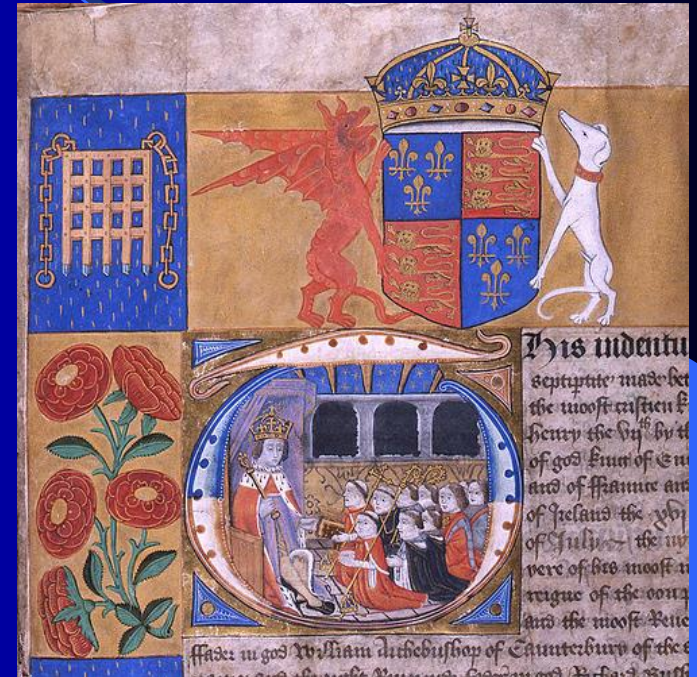 This indentu
septiptite made bet
the moost cristen k
henry the vijth by th
of god king of En
and of ffraunce an
of Ireland the xvj
of July the
yere of his moost n
reigne of the oon
and the moost Reue
ffader in god William Archebisshop of Caunterbury of the
Fader in god Richard Bussh